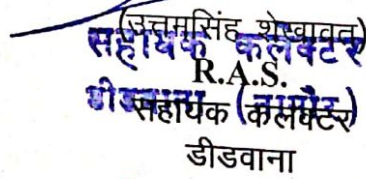 (उत्तमसिंह शेखावत)
सहायक कलक्टर
R.A.S.
डीडवाना (नागौर)
सहायक (कलक्टर)
डीडवाना